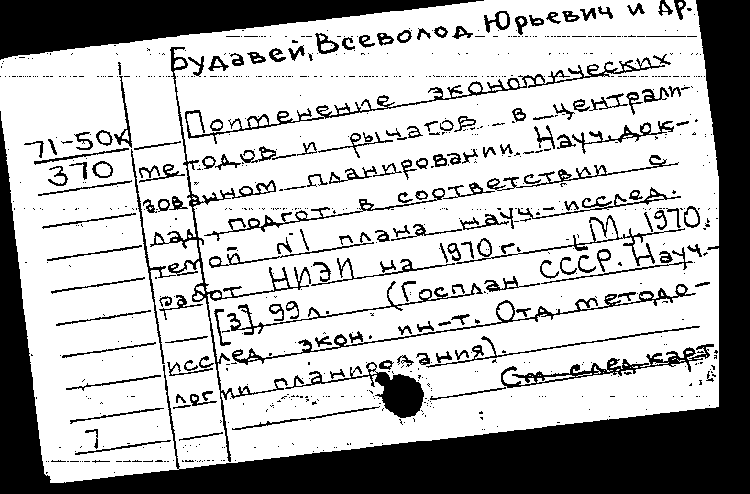 Будавей, Всеволод Юрьевич и др.
71-50к
370
Применение экономических
методов и рычагов в централи-
зованном планировании. Науч. док-
лад, подгот. в соответствии с
темой №1 плана науч.-исслед.
работ НИЭИ на 1970 г. [М., 1970.
[3], 99 л. (Госплан СССР. Науч.-
исслед. экон. ин-т. Отд. методо-
логии планирования).
См след карт
7